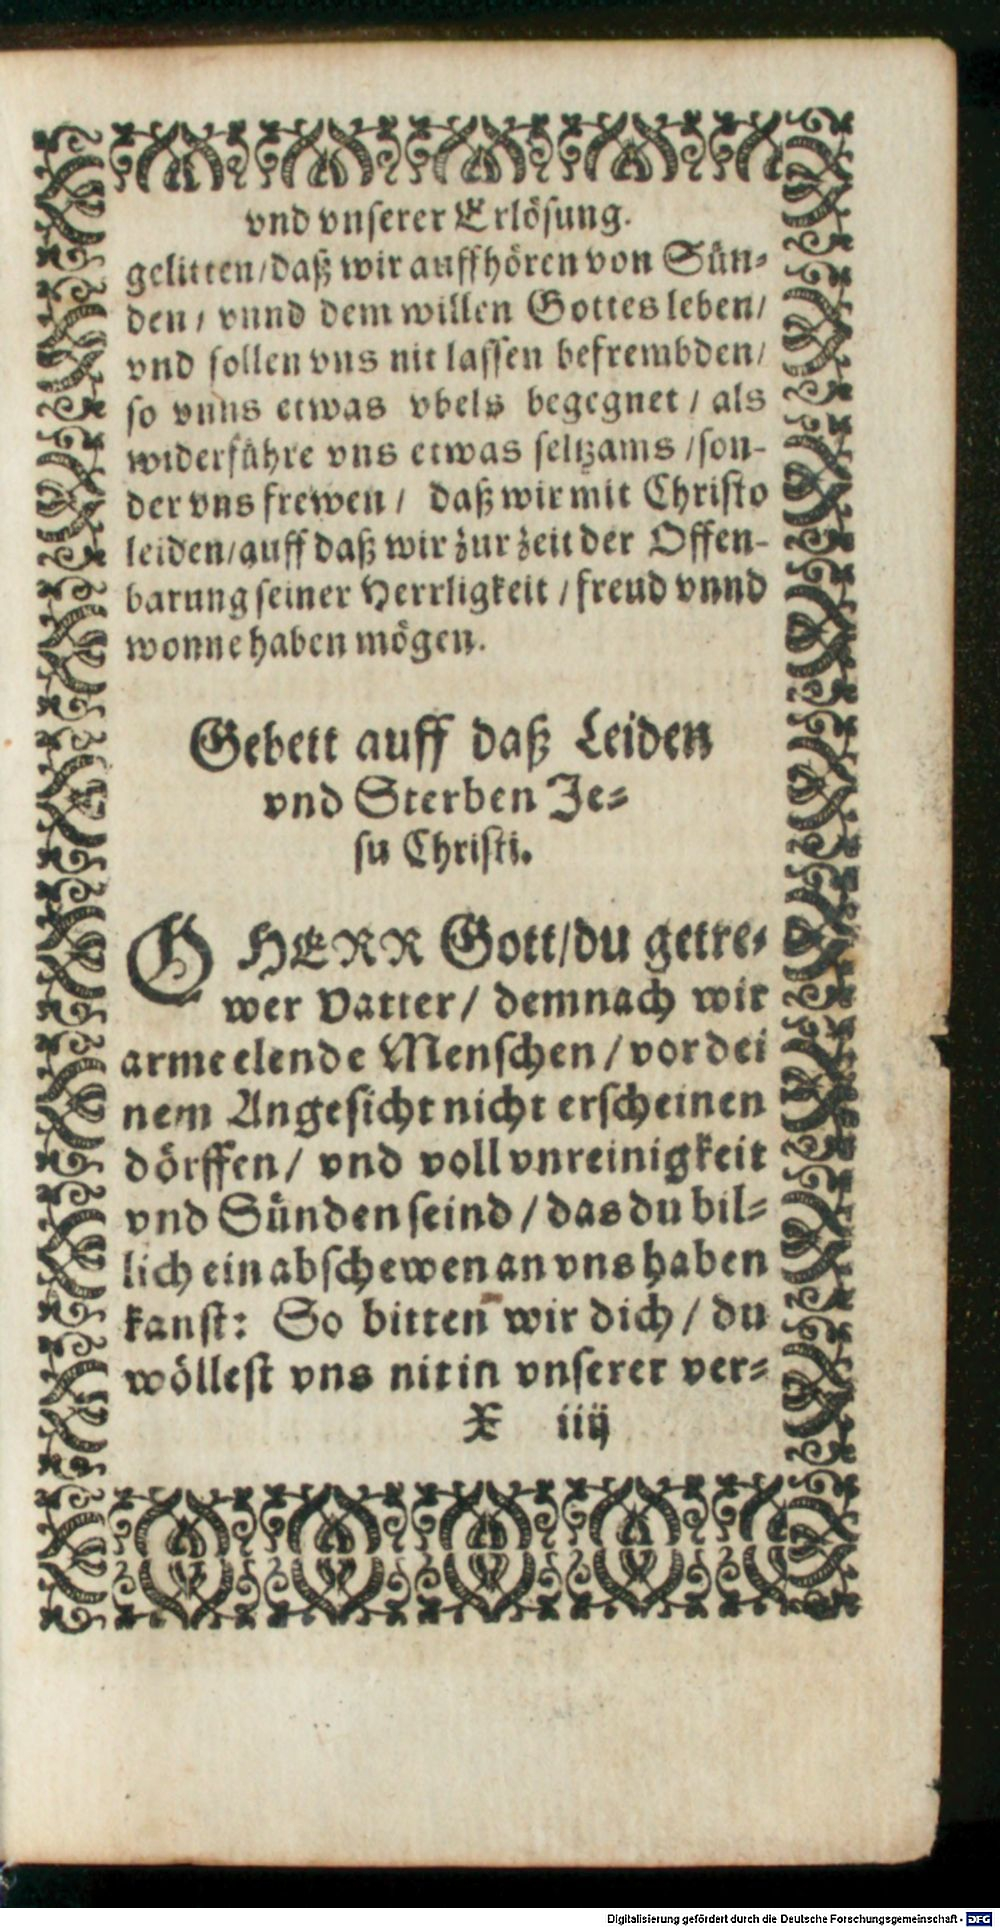 vnd vnserer Erlösung.
gelitten/daß wir auffhören von Sün-
den/ vnnd dem willen Gottes leben/
vnd sollen vns nit lassen befrembden/
so vnns etwas vbels begegnet/ als
widerführe vns etwas seltzams/son-
der vns frewen/ daß wir mit Christo
leiden/auff daß wir zur zeit der Offen-
barung seiner Herrligkeit/freud vnnd
wonne haben mögen.
Gebett auff daß Leiden
vnd Sterben Je-
su Christi.
O HERR Gott/du getre-
wer Vatter/ demnach wir
arme elende Menschen/vor dei
nem Angesicht nicht erscheinen
dörffen/ vnd voll vnreinigkeit
vnd Sünden seind/das du bil-
lich ein abschewen an vns haben
kanst: So bitten wir dich/ du
wöllest vns nit in vnserer ver-
X iiij
Digitalisierung gefördert durch die Deutsche Forschungsgemeinschaft - DFG